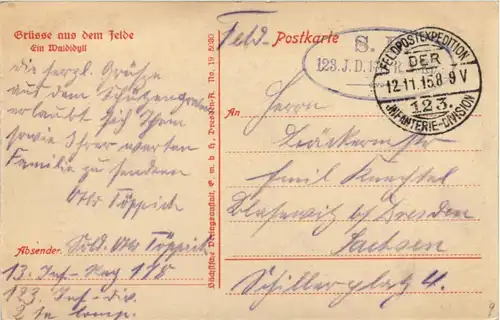 Grüsse aus dem Felde
Ein Waldidyll
die herzl. Grüße
aus dem Schützengraben
erlaubt sich Ihnen
sowie Ihrer werten
Familie zu senden
Otto Töppich
Absender: Sold. Otto Töppich
13. Inf-Reg 178
123. Inf-div.
2te Comp.
Sächsische Verlagsanstalt, G. m. b. H., Dresden-A. No. 19
Feld- Postkarte
S. B.
123. J. D.
FELDPOSTEXPEDITION
DER
12.11.15.8-9V
123.
INFANTERIE-DIVISION
An Herrn
Bäckermstr
Emil Knechtel
Blasewitz b/ Dresden
Sachsen
Schillerplatz 4.